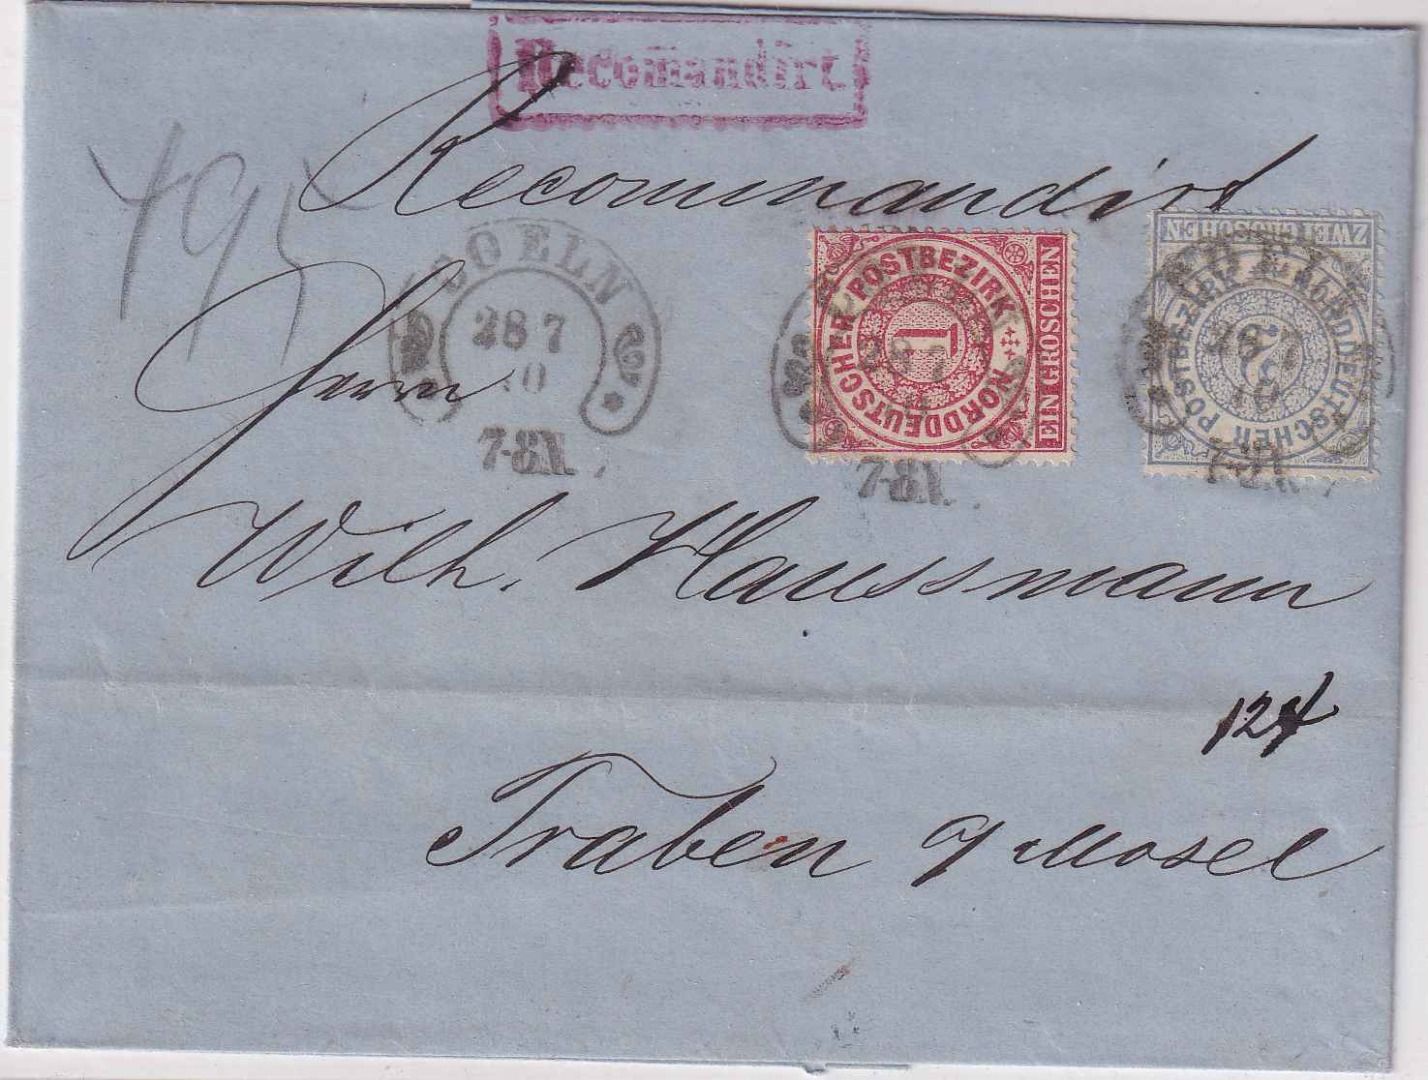 Recomandirt
Recommandirt
495
COELN
28 7
7-8N.
NORDDEUTSCHER POSTBEZIRK
1
EIN GROSCHEN
28 7
7-8N.
ZWEI GROSCHEN
NORDDEUTSCHER POSTBEZIRK
2
COELN
7-8N.
Herrn
Wilh. Haussmann
Traben a/Mosel